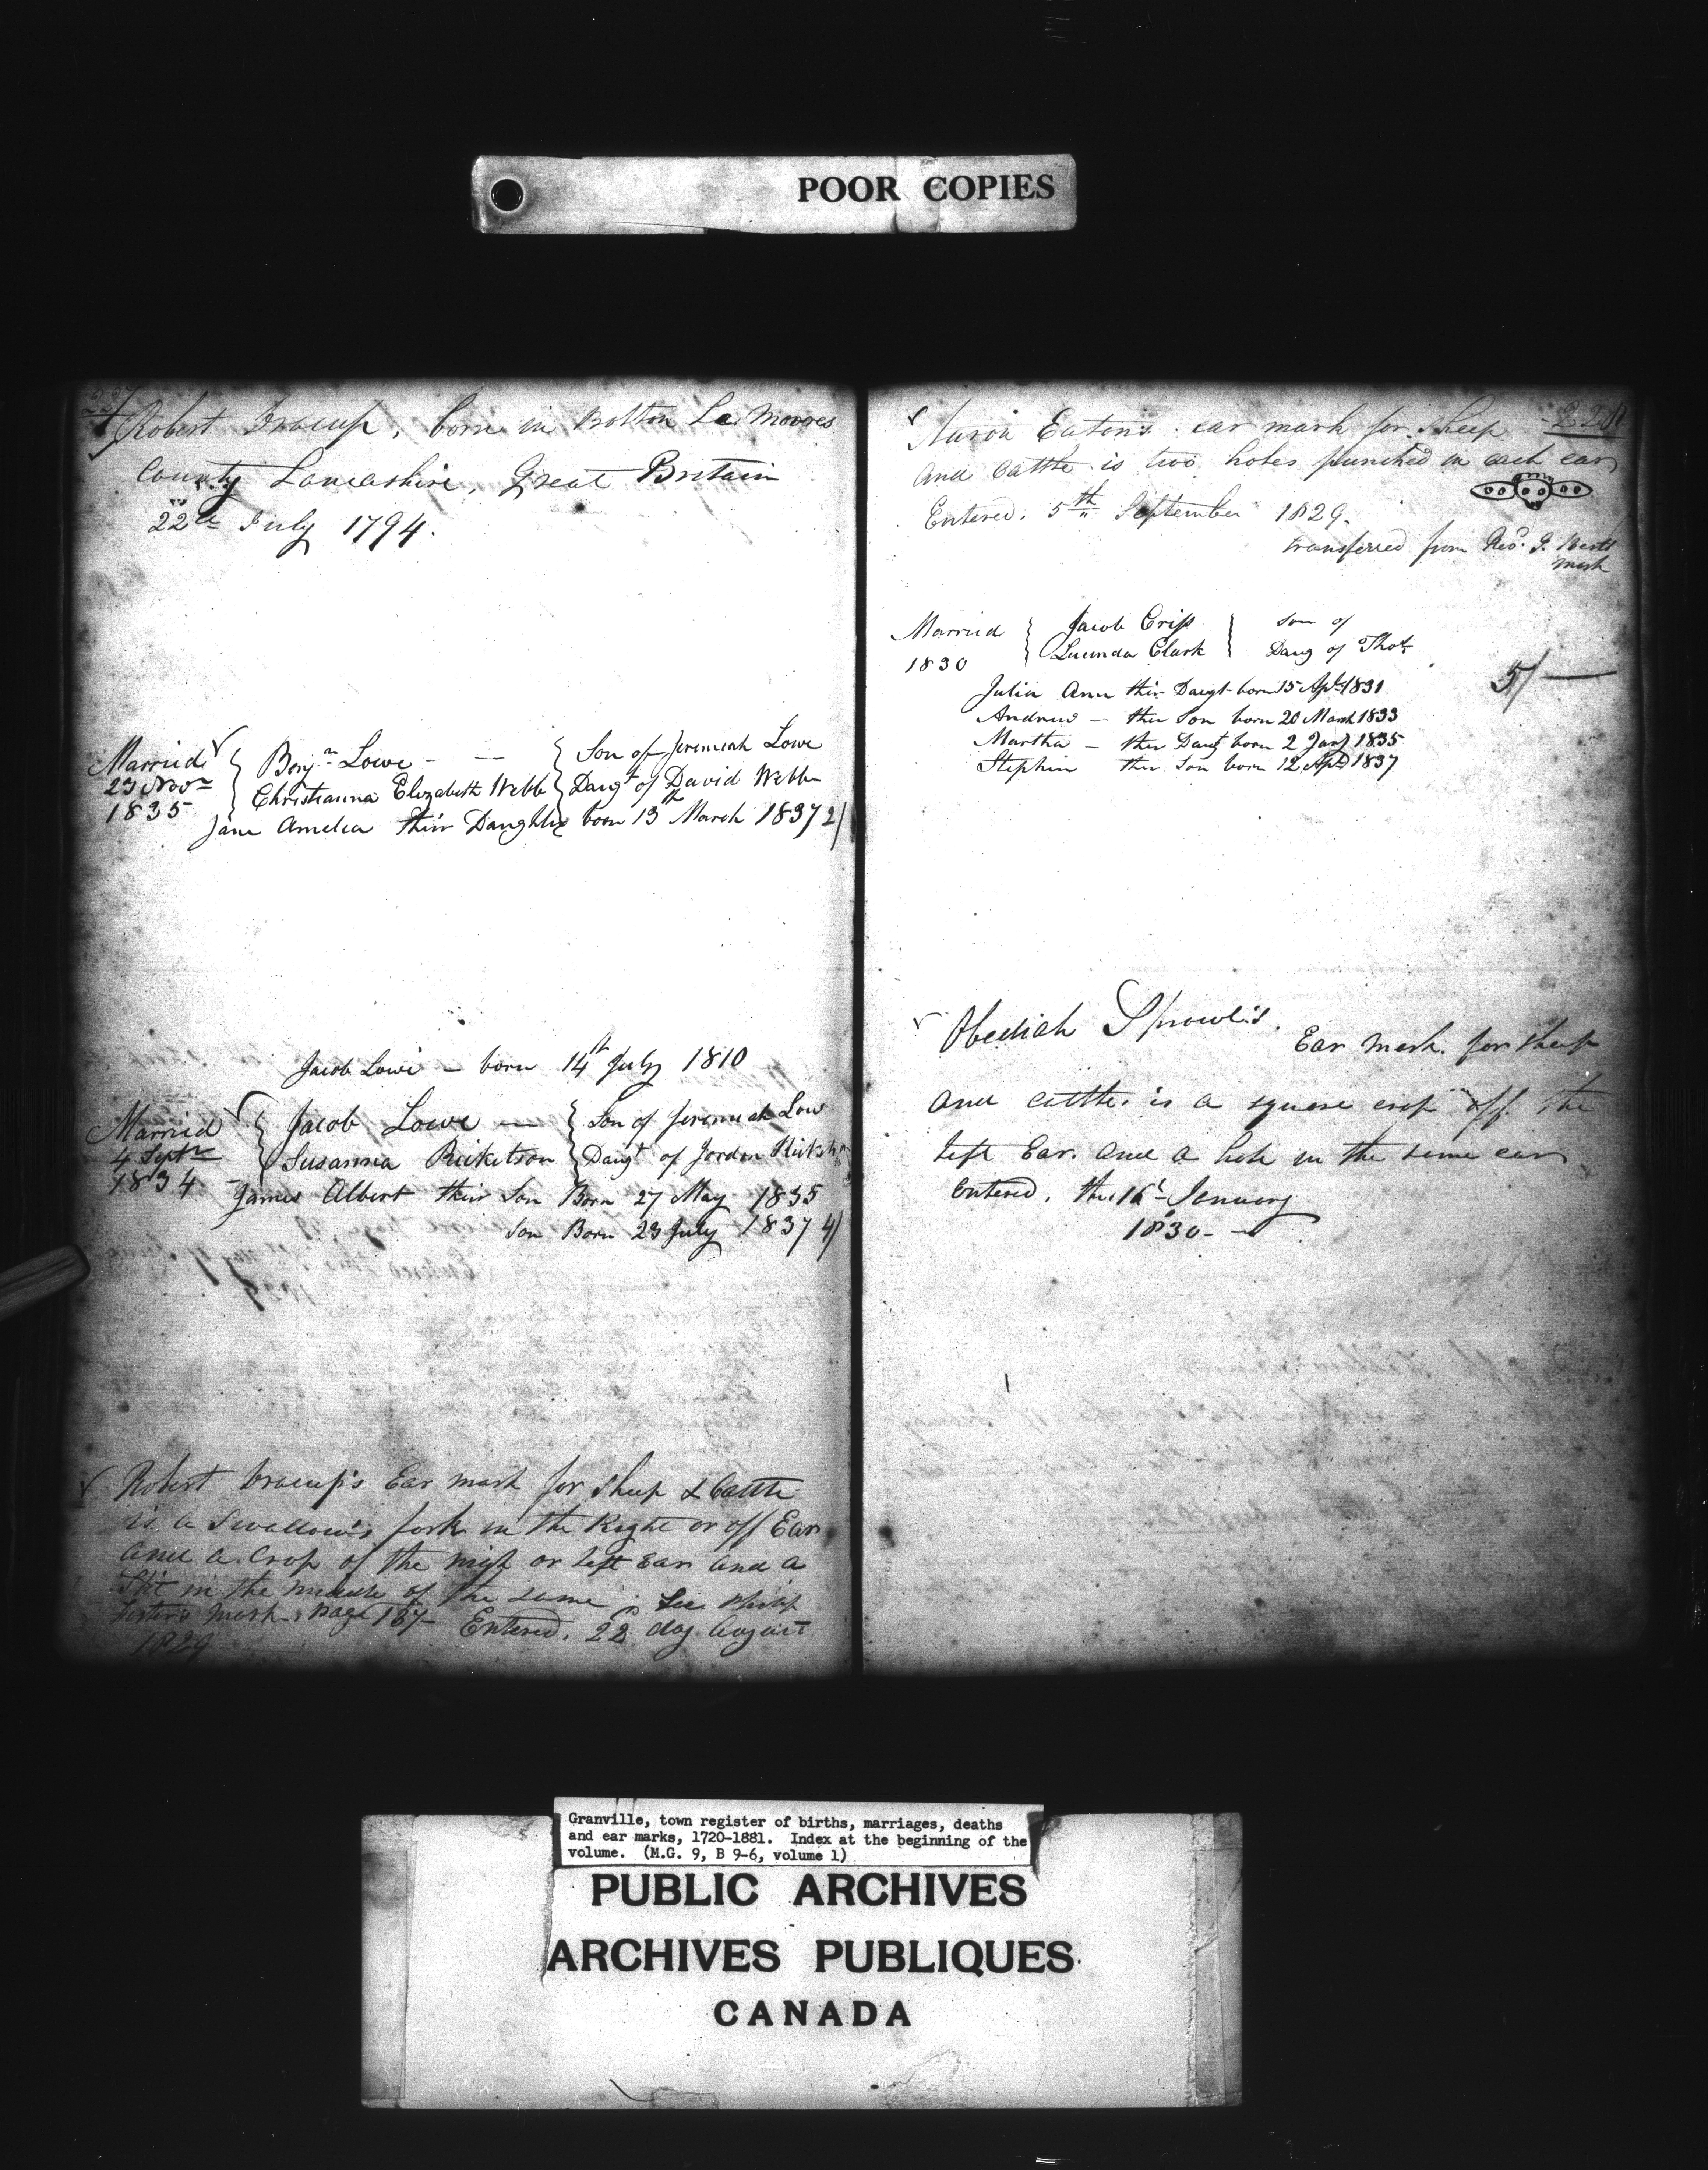 POOR COPIES
227
Robert Fracup, born in Bolton La Moores
County Lancashire, Great Britain
22d July 1794.
Married
23 Novr
1835
Benjn Lowe - - - Son of Jeremiah Lowe
Christianna Elizabeth Webb Daugt of David Webb
Jane Amelia their Daughter born 13th March 1837 2/
Jacob Lowe - born 14th July 1810
Married
4 Septr
1834
Jacob Lowe - Son of Jeremiah Low
Susanna Ricketson Daugt of Jordon
James Albert their Son Born 27 May 1835
Son Born 23 July 1837 4/
Robert Fracup's Ear mark for Sheep & Cattle
is a Swallow's fork in the Right or off Ear
and a Crop of the nigh or left Ear and a
Slit in the middle of the same, See Philip
mark page 167 Entered, 22d day August
1829
228
Aaron Eaton's ear mark for Sheep
and cattle is two holes punched in each ear
Entered. 5th September 1829.
transferred from Revd. J.
mark
Married
1830
Jacob Crisp son of
Lucinda Clark Daug of Thos
Julia Ann thir Daugt born 15 Apl 1831
Andrew - ther Son born 20 March 1833
Martha - ther Daugt born 2 Jany 1835
Stephen ther Son born 12 Apl 1837
5/ -
Obediah Sprowl's.
Ear mark. for Sheep
and cattle. is a square crop off. the
left Ear. and a hole in the same ear
Entered. the 16th January
1830 -
Granville, town register of births, marriages, deaths
and ear marks, 1720-1881. Index at the beginning of the
volume. (M.G. 9, B 9-6, volume 1)
PUBLIC ARCHIVES
ARCHIVES PUBLIQUES
CANADA